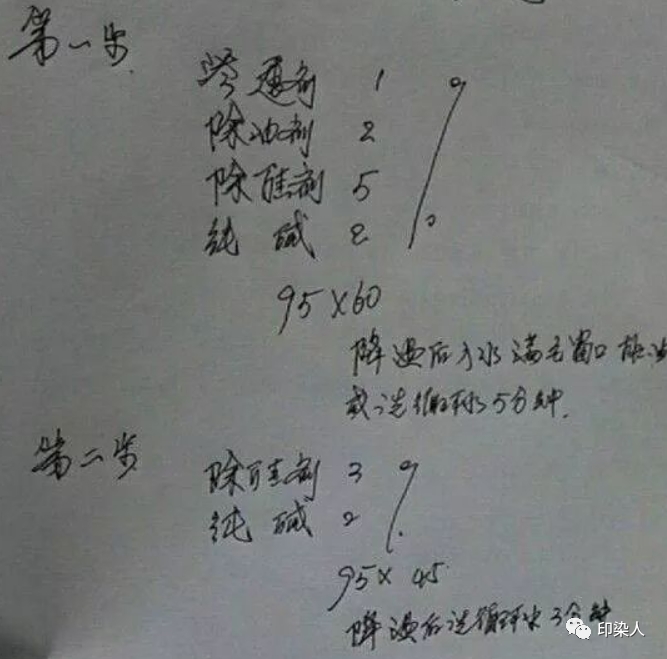 第一步
渗透剂 1 %
除油剂 2
除硅剂 5
纯碱 2
95×60
降温后入水满毛窗口
或选循环5分钟.
第二步
除硅剂 3 %
纯碱 2
95×45
降温后选循环水3分钟
印染人